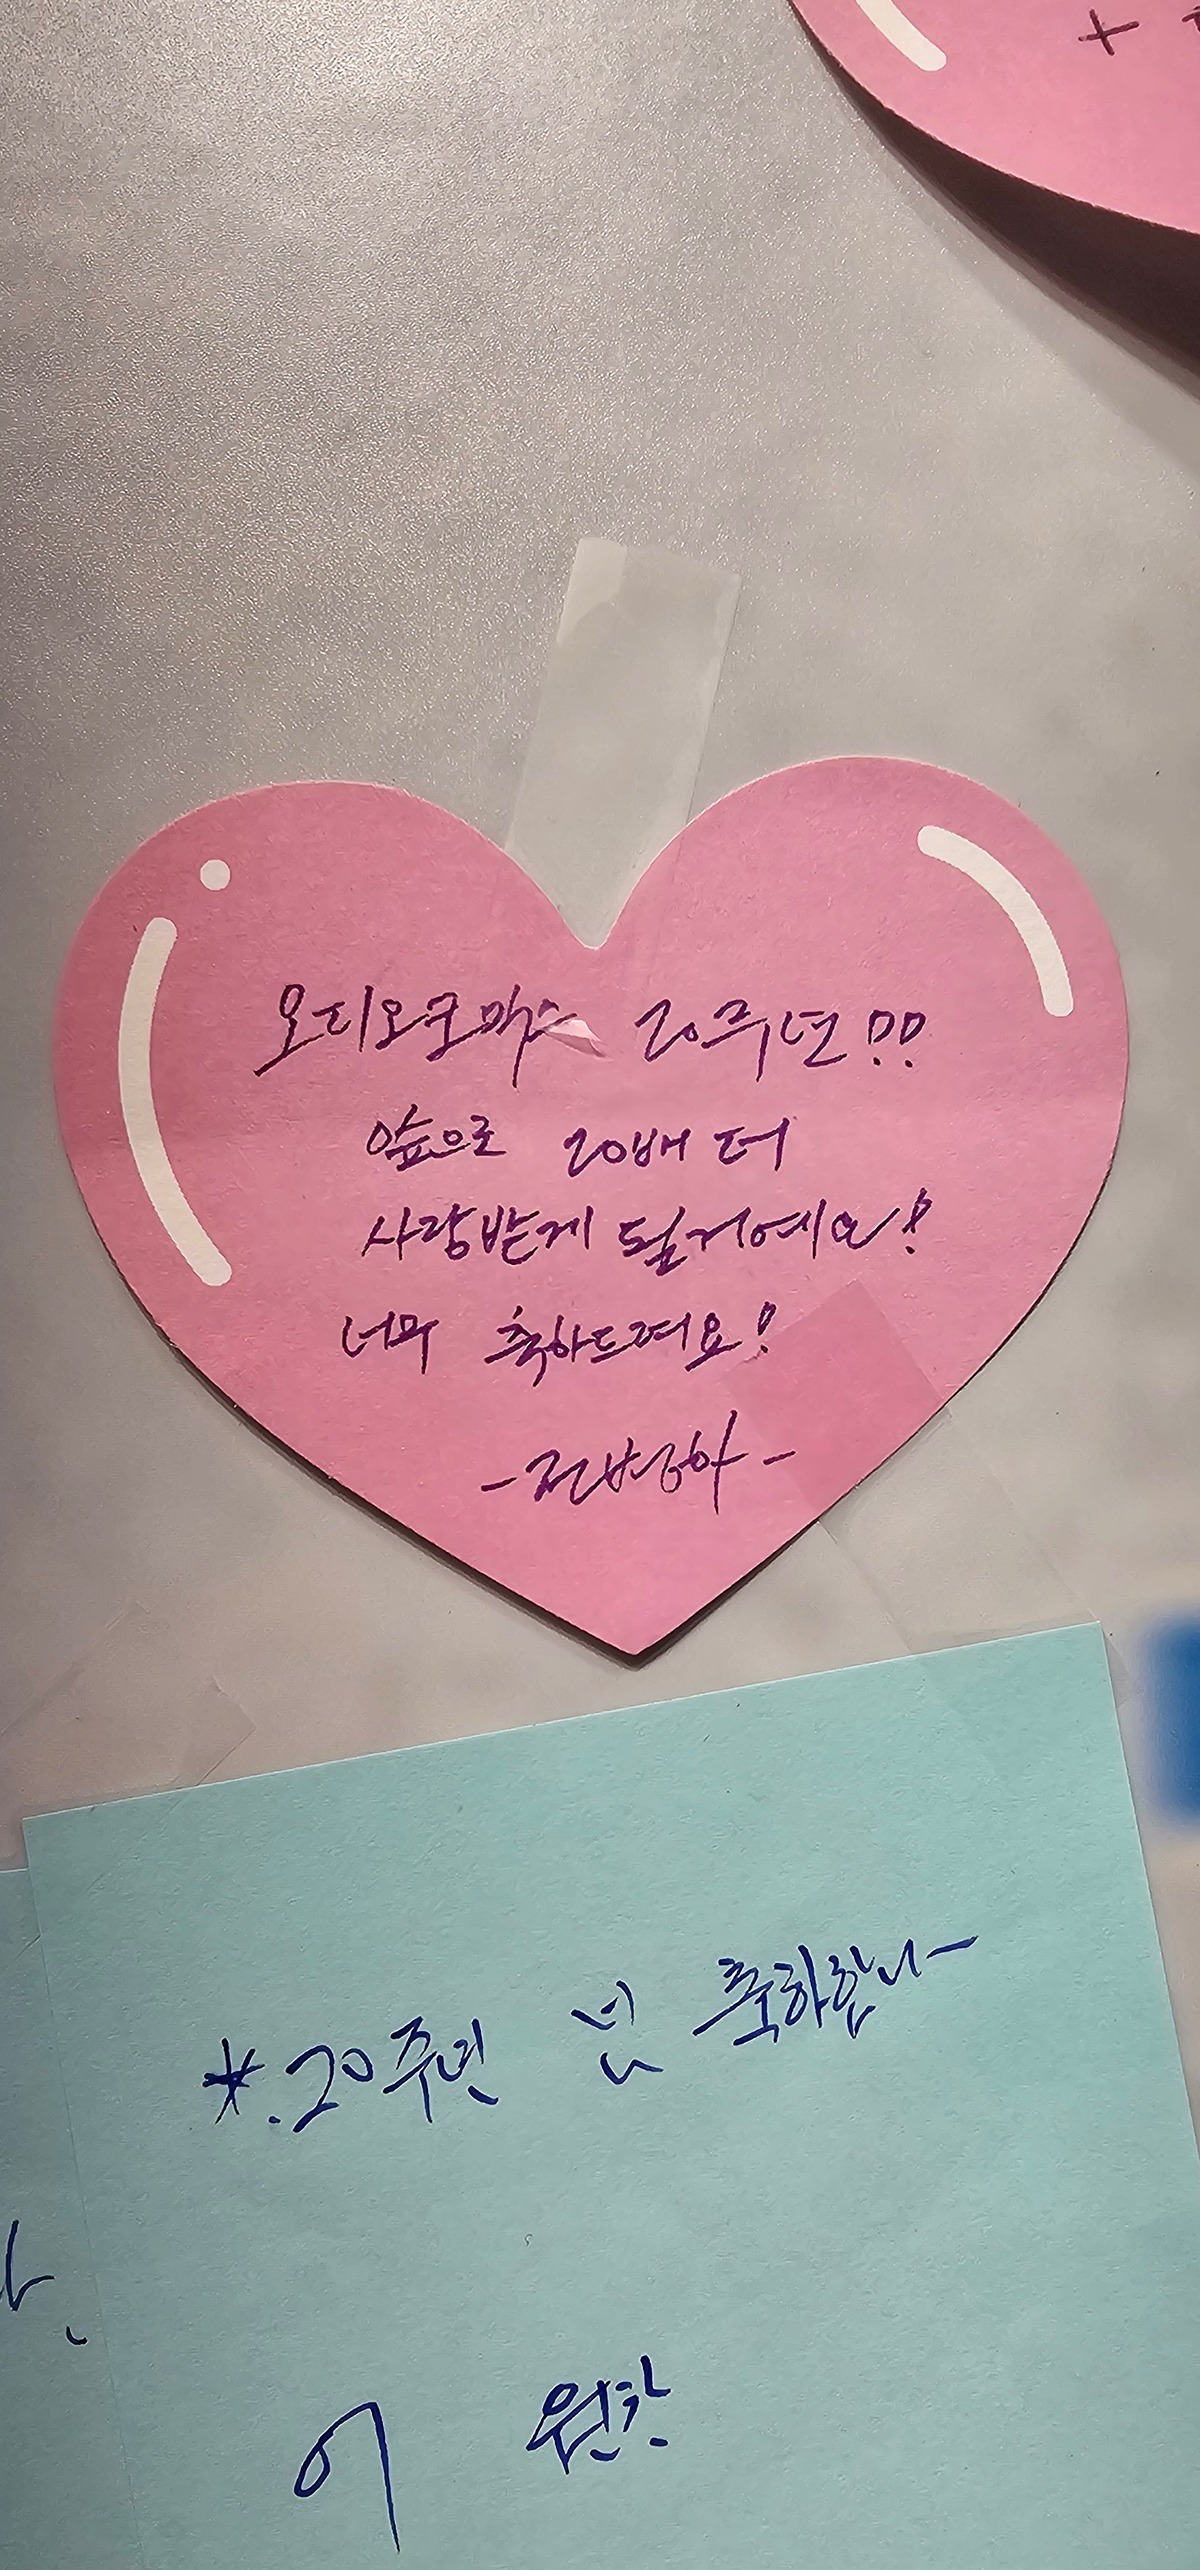 오디오코믹스 20주년!!
앞으로 20배 더
사랑받게 될거예요!
너무 축하드려요!
*.20주년 넘 축하합니-
이 원찬